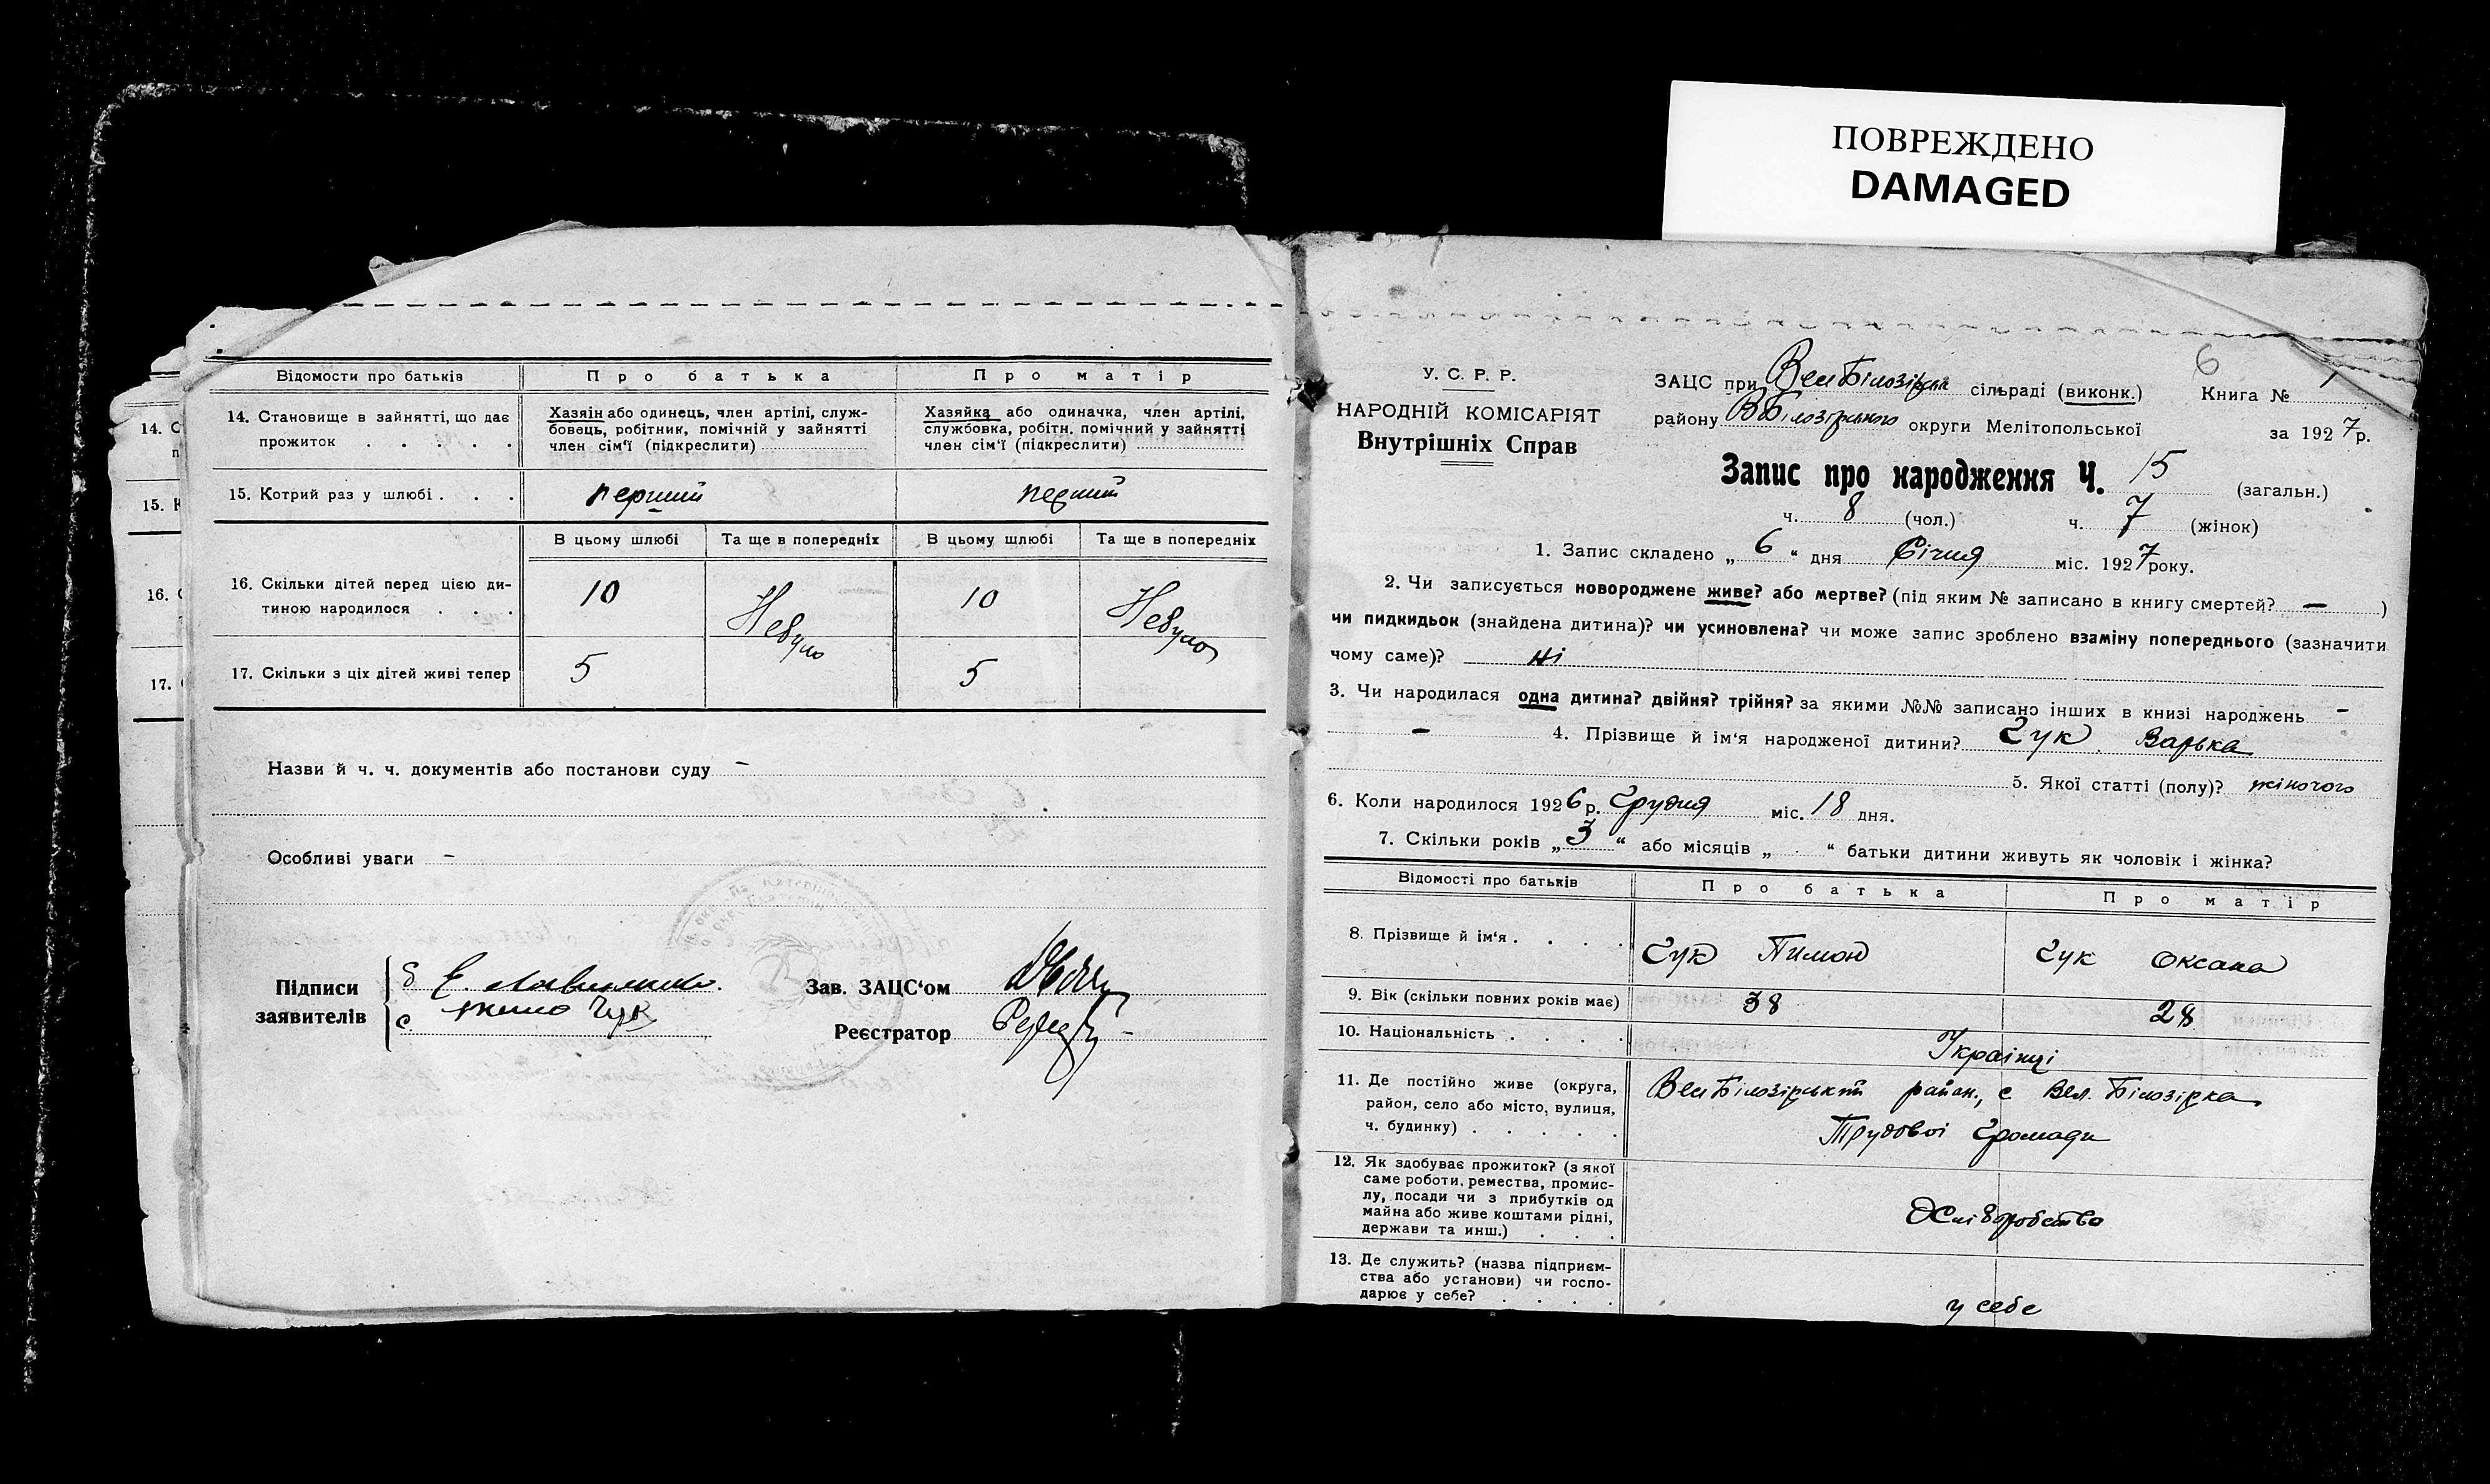 ПОВРЕЖДЕНО
DAMAGED
14. С
п
15. К
16. С
17.
Відомости про батьків
Про батька
Про матір
14. Становище в зайнятті, що дає
прожиток . . . . .
Хазяін або одинець, член артілі, служ-
бовець, робітник, помічній у зайнятті
член сім'ї (підкреслити)
Хазяйка або одиначка, член артілі,
службовка, робітн. помічний у зайнятті
член сім'ї (підкреслити)
15. Котрий раз у шлюбі . . .
перший
перший
В цьому шлюбі
Та ще в попередніх
В цьому шлюбі
Та ще в попередніх
16. Скільки дітей перед цією ди-
тиною народилося . . .
10
Небуло
10
Небуло
17. Скільки з ціх дітей живі тепер
5
5
Назви й ч. ч. документів або постанови суду –
Особливі уваги –
Підписи
заявителів
Чук
Зав. ЗАЦС'ом
Реєстратор
У. С. Р. Р.
НАРОДНІЙ КОМІСАРІЯТ
Внутрішніх Справ
6
ЗАЦС при Вел Білозірськ сільраді (виконк.)
Книга № 1
району ВБілозірського округи Мелітопольської
за 1927р.
Запис про народження Ч. 15 (загальн.)
ч. 8 (чол.) ч. 7 (жінок)
1. Запис складено „ 6 “ дня Січня міс. 1927року.
2. Чи записується новороджене живе? або мертве? (під яким № записано в книгу смертей? – )
чи пидкидьок (знайдена дитина)? чи усиновлена? чи може запис зроблено взаміну попереднього (зазначити
чому саме)? ні
3. Чи народилася одна дитина? двійня? трійня? за якими №№ записано інших в книзі народжень –
– 4. Прізвище й ім'я народженої дитини? Чук Варька
5. Якої статті (полу)? жіночого
6. Коли народилося 1926р. Грудня міс. 18 дня.
7. Скільки років „ 3 “ або місяців „ “ батьки дитини живуть як чоловік і жінка?
Відомості про батьків
Про батька
Про матір
8. Прізвище й ім'я . . . .
Чук Пимон
Чук Оксана
9. Вік (скільки повних років має)
38
28
10. Національність . . . .
Українці
11. Де постійно живе (округа,
район, село або місто, вулиця,
ч. будинку) . . . . .
Вел Білозірський район, с Вел. Білозірка
Трудової Громади
12. Як здобуває прожиток? (з якої
саме роботи, ремества, промис-
лу, посади чи з прибутків од
майна або живе коштами рідні,
держави та инш.) . . .
Хліборобство
13. Де служить? (назва підприєм-
ства або установи) чи госпо-
дарює у себе? . . . .
у себе